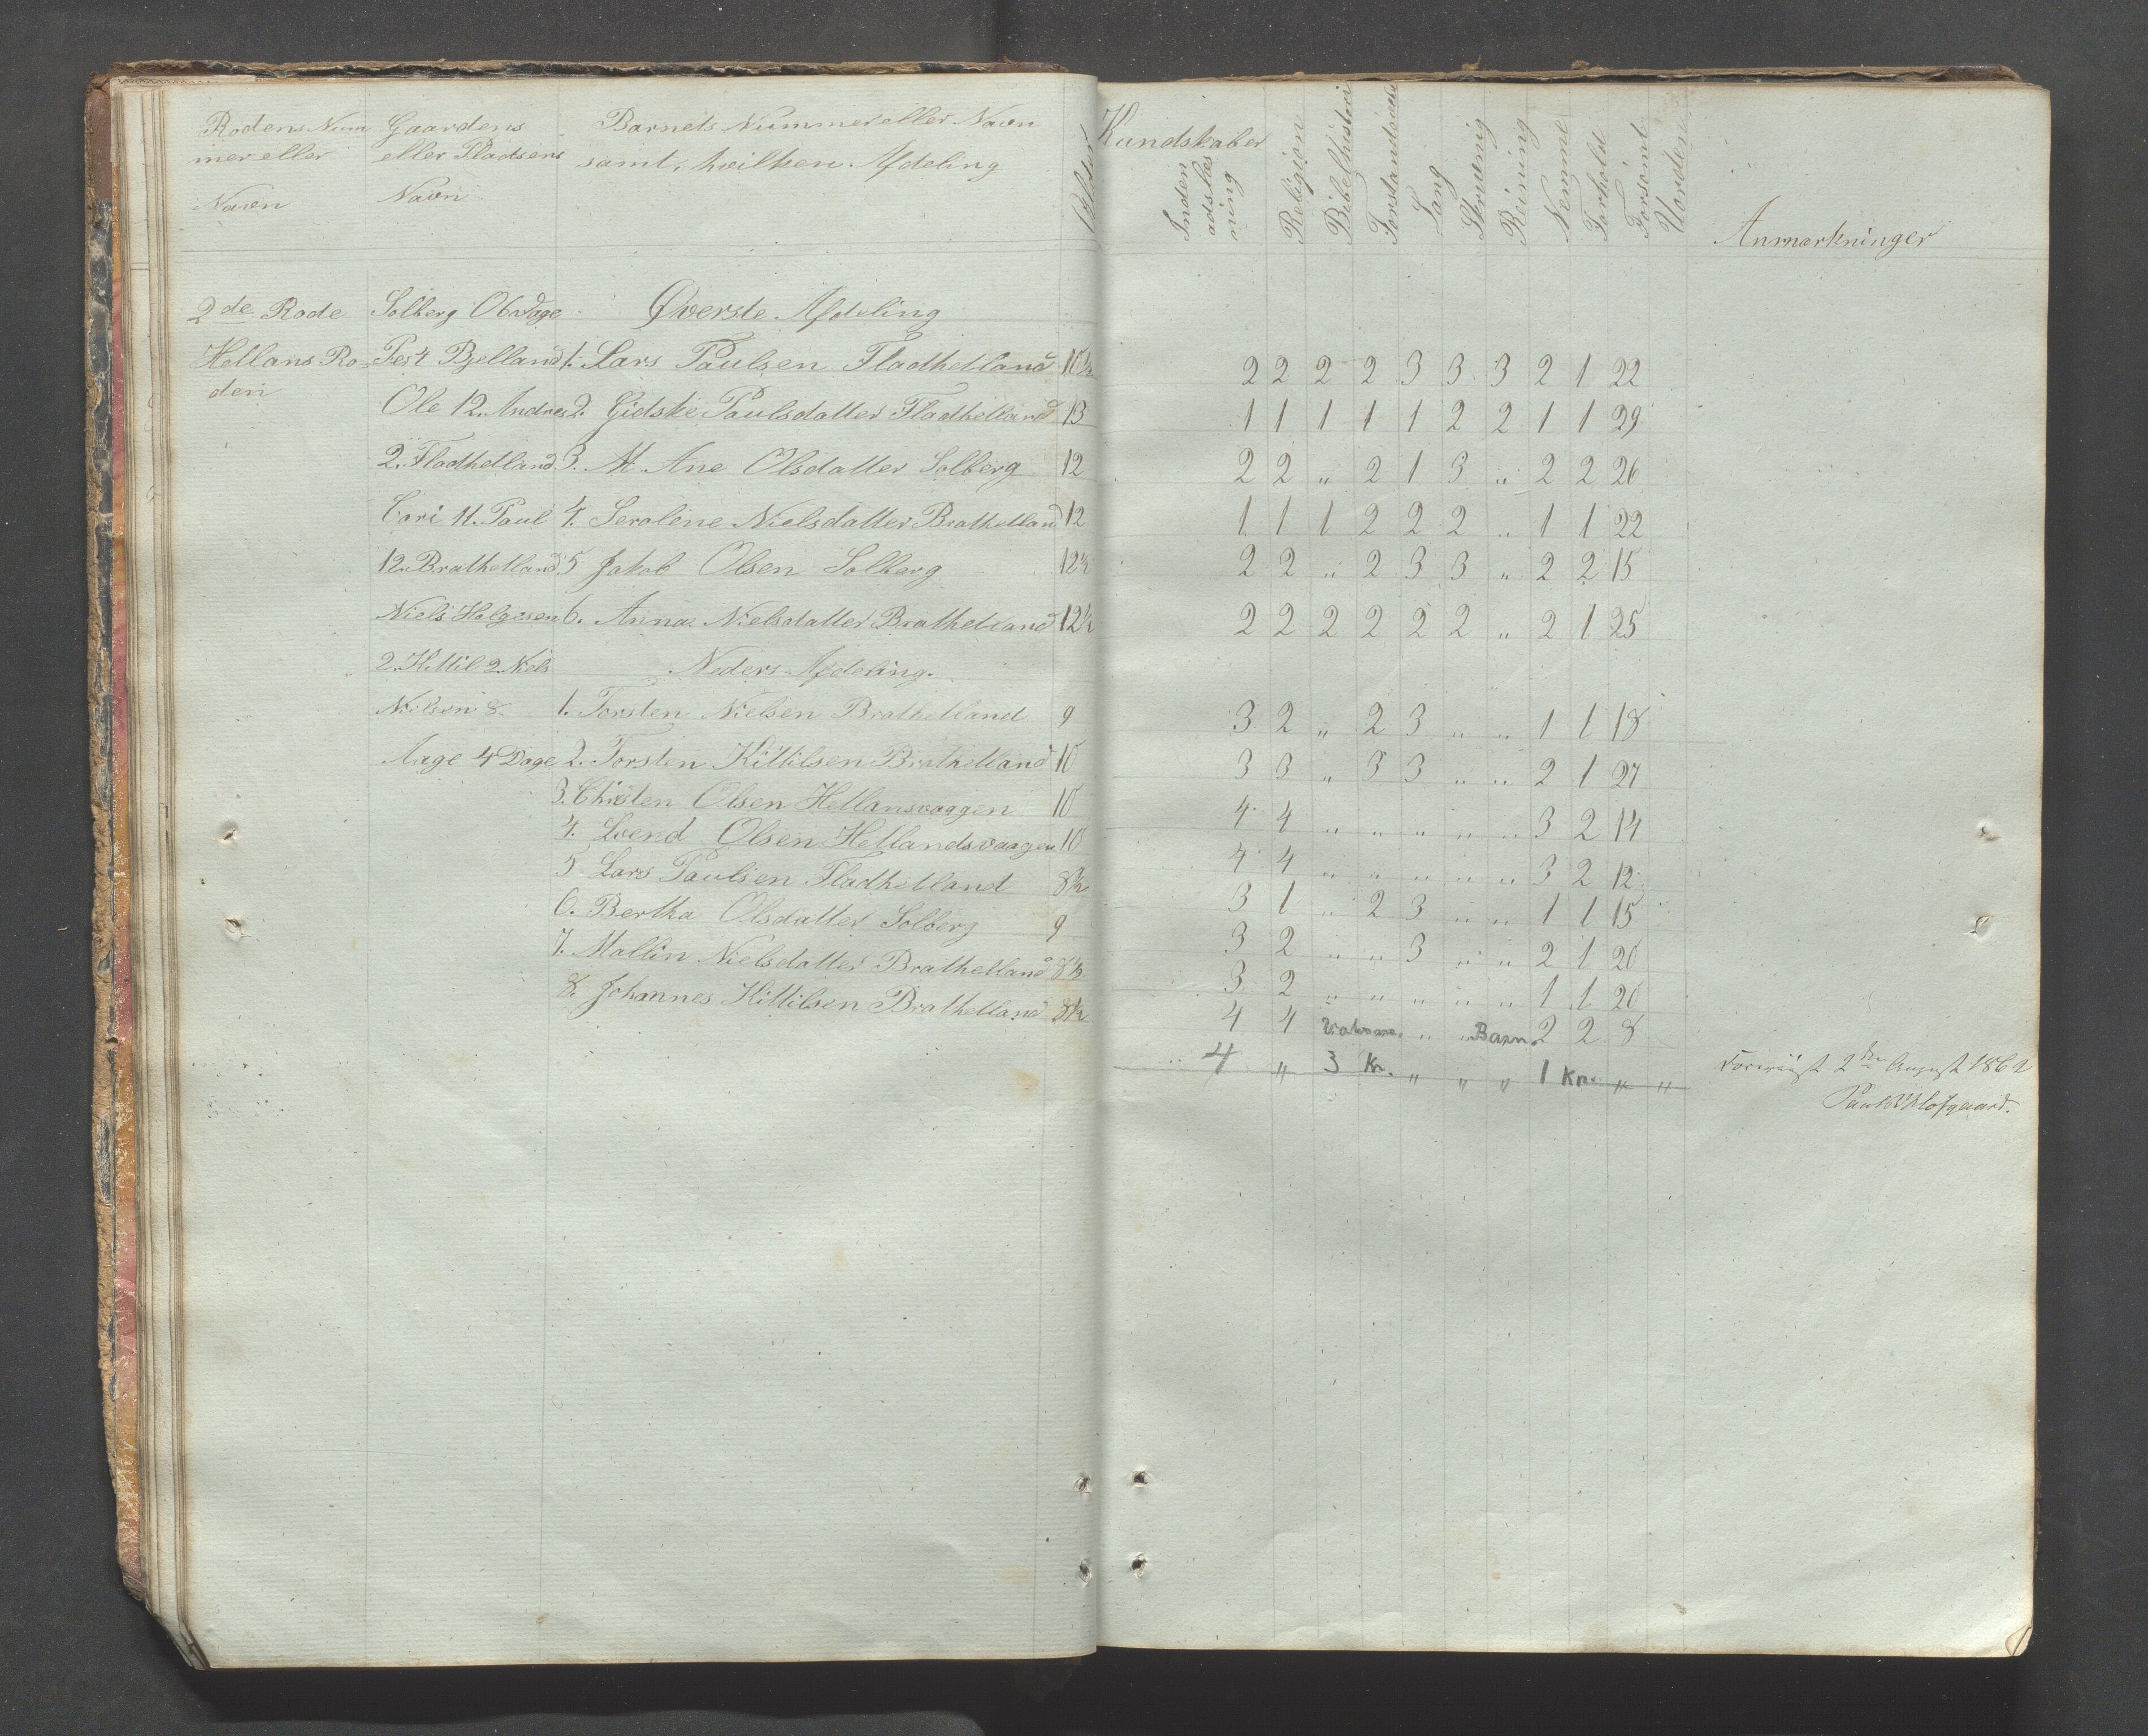 Rodens Num
mer eller
Navn
Gaardens
eller Pladsens
Navn
Barnets Nummer eller Navn
samt, hvilken Afdeling
Alder
Kundskaber
Inden
adslæs
ning
Religion
Bibelhistori
Sang
Skrivnig
Reining
Nemme
Forhold
Forsømt
Uorden
Anmærkninger
2de Rode Solberg Øverste Afdeling
Hellans Ro- Bjelland 1. Lars Paulsen Fladhelland 10½ 2 2 2 2 3 3 3 2 1 22
den
Ole 12. Andres 2. Gidske Paulsdatter Fladhelland 13 1 1 1 1 1 2 2 1 1 29
2. Fladhelland 3. M. Ane Olsdatter Solberg 12 2 2 " 2 1 3 " 2 2 26
11. Paul 4. Seraline Nielsdatter Brathelland 12 1 1 1 2 2 2 " 1 1 22
12. Brathelland 5 Jakob Olsen Solberg 12½ 2 2 " 2 3 3 " 2 2 15
Niels Helgesen 6. Anna Nielsdatter Brathelland 12½ 2 2 2 2 2 2 " 2 1 25
2. Kittil 2. Niels Neders Afdeling.
Nilsen 8 1. Torsten Nielsen Brathelland 9 3 2 " 2 3 " " 1 1 18
Aage 4 Dage 2. Torsten Kittilsen Brathelland 10 3 3 " 3 3 " " 2 1 27
3. Christen Olsen Hellansvaagen 10 4 4 " " " " " 3 2 14
4. Svend Olsen Hellandsvaagen 10 4 4 " " " " " 3 2 12
5 Lars Paulsen Fladhelland 8½ 3 1 " 2 3 " " 1 1 15
6. Bertha Olsdatter Solberg 9 3 2 " " 3 " " 2 1 20
7. Mallin Nielsdatter Brathelland 8½ 3 2 " " " " " 1 1 20
8. Johannes Kittilsen Brathelland 8½ 4 4 " " Barn. 2 2 8
4 " 3 Kr. " " " 1 Kr. " "
2den August 1862